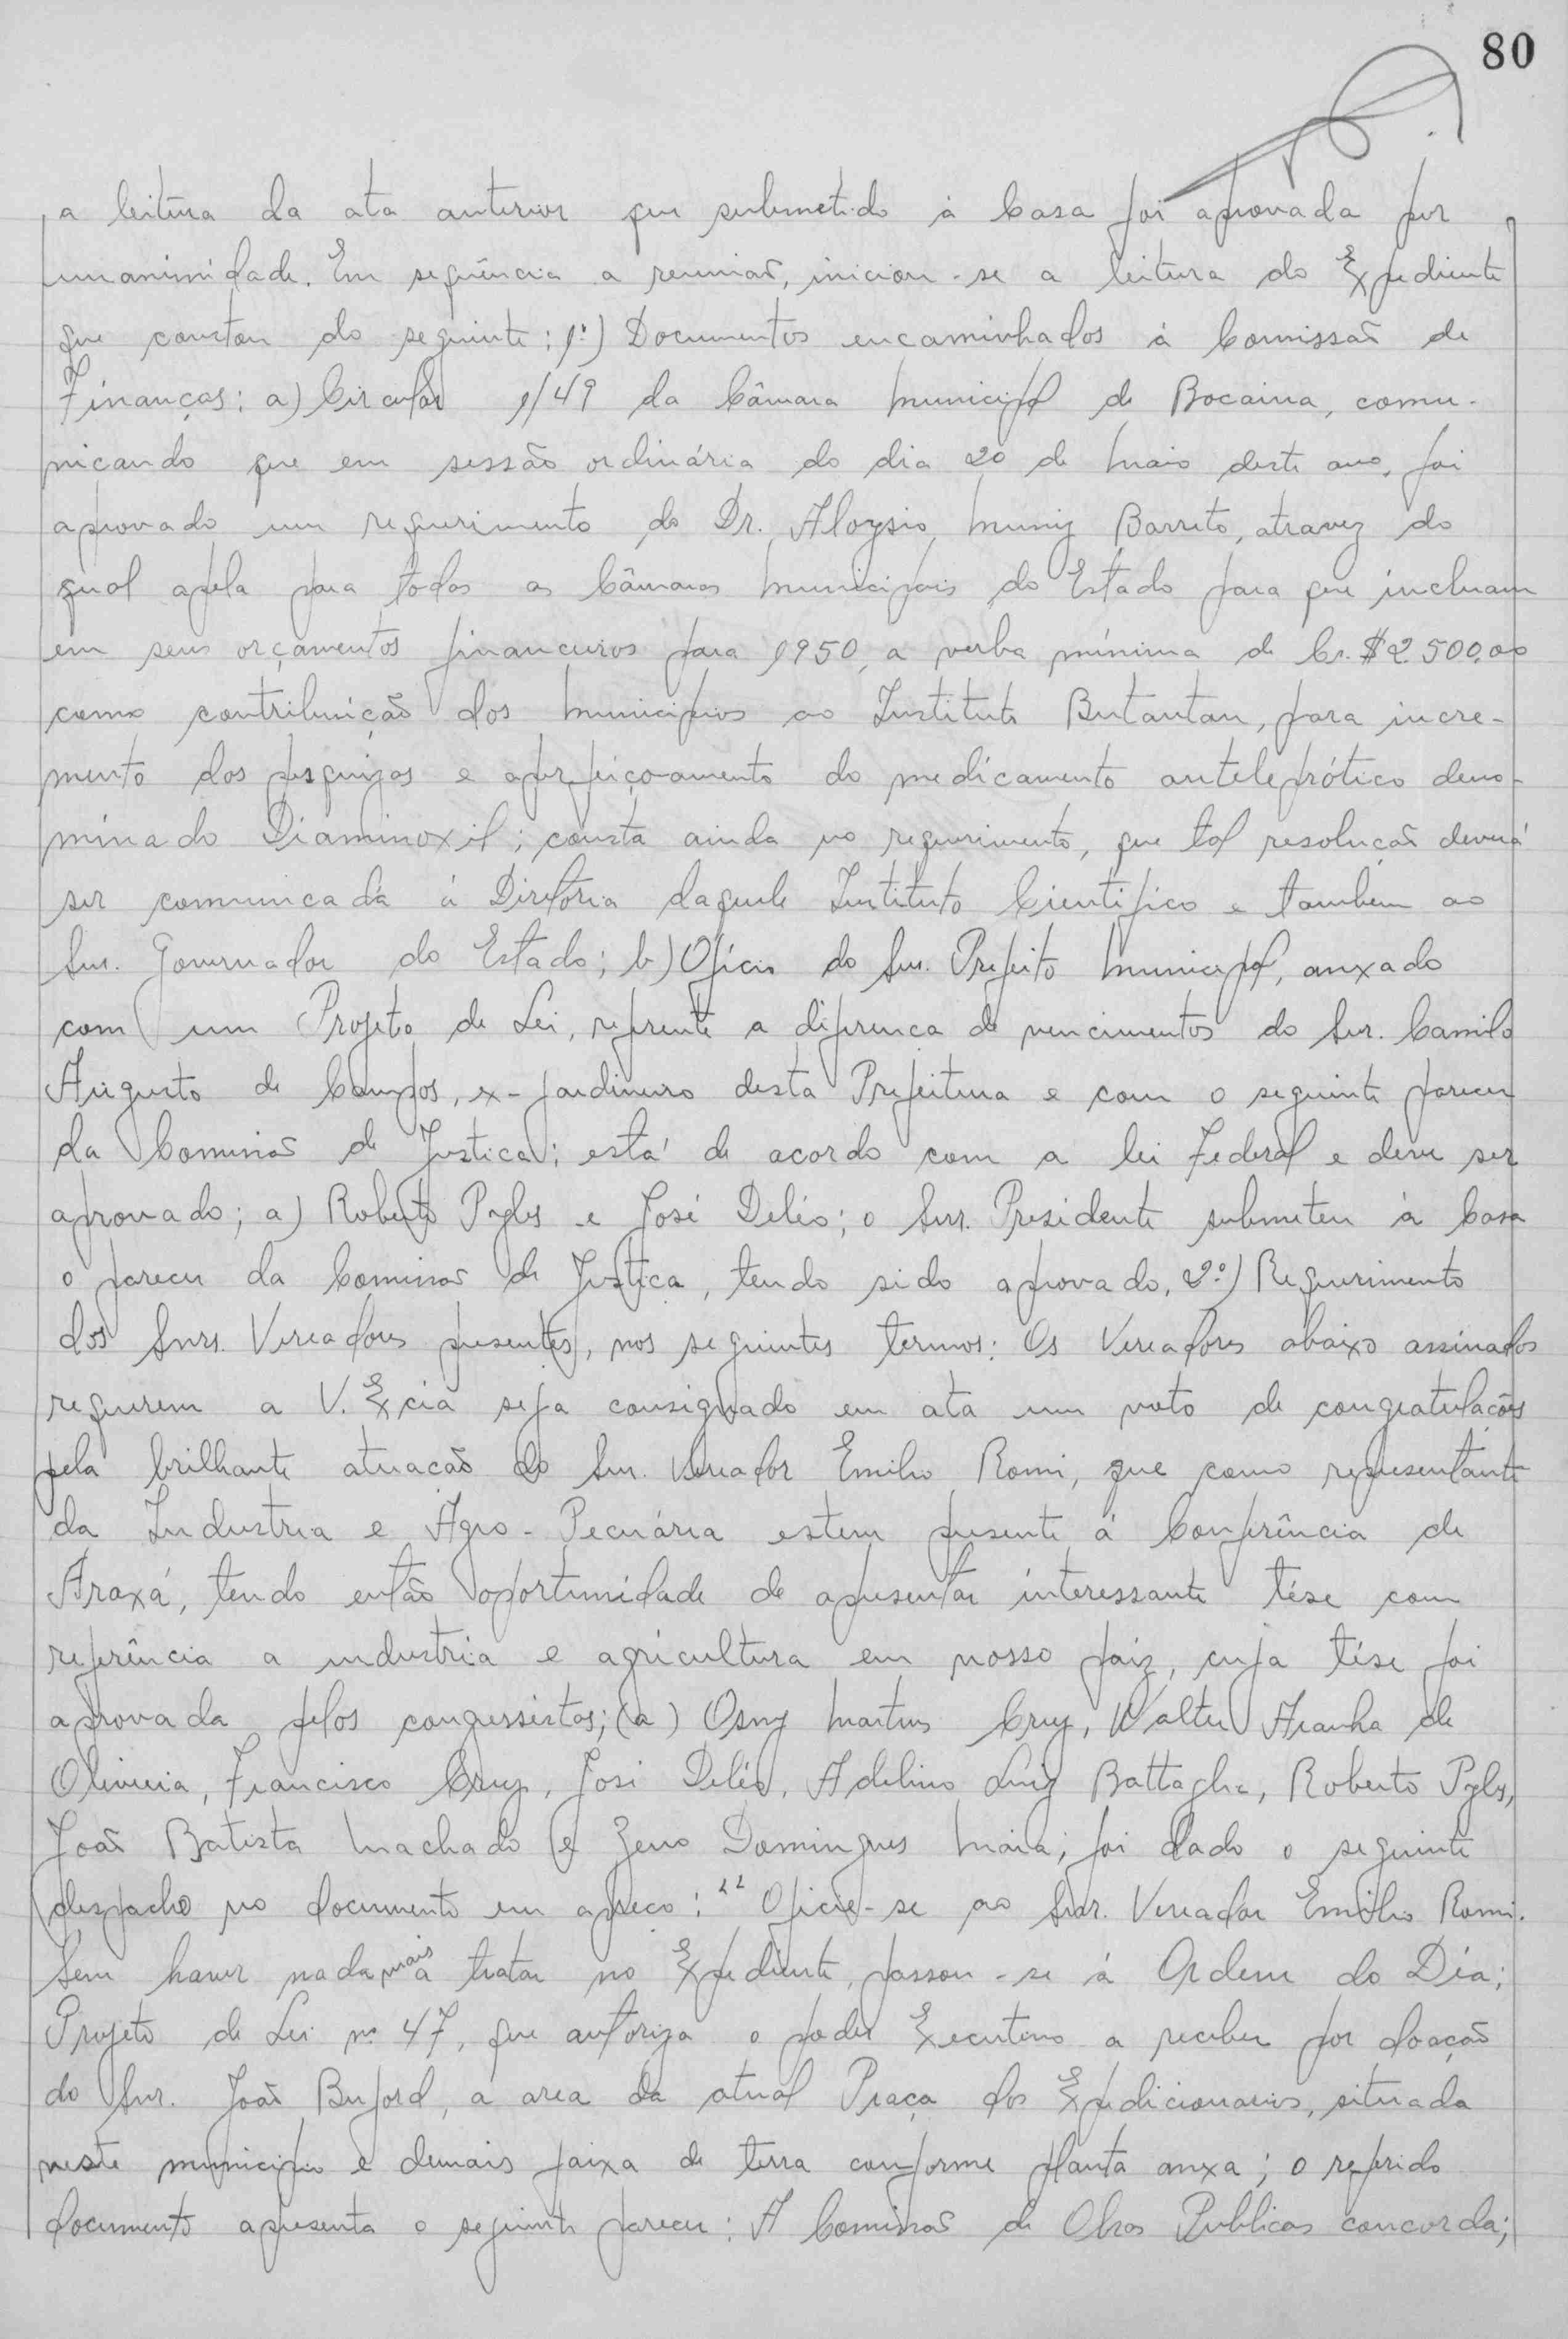 80
a leitura da ata anterior que submetido á Casa foi aprovada por
unanimidade. Em seqûencia a reunião, iniciou-se a leitura do Expediente
que constou do seguinte: 1º) Documentos encaminhados á Comissão de
Finanças: a) Circular 1/49 da Câmara Municipal de Bocaina, comu-
nicando que em sessão ordinária do dia 20 de Maio deste ano, foi
aprovado um requerimento do Dr. Aloysio Muniz Barreto, atravez do
qual apela para todas as Câmaras Municipais do Estado para que incluam
em seus orçamentos financeiros para 1950, a verba mínima de Cr.$2.500,00
como contribuição dos Municipios ao Instituto Butantan, para incre-
mento das pesquizas e aperfeiçoamento do medicamento anteleprótico deno-
minado Diaminoxil; consta ainda no requerimento, que tal resolução deverá
ser comunicada á Diretoria daquele Instituto Cientifico e tambem ao
Snr. Governador do Estado; b) Ofício do Snr. Prefeito Municipal, anexado
com um Projeto de Lei, referente a diferença de vencimentos do Snr. Camilo
Augusto de Campos, ex-jardineiro desta Prefeitura e com o seguinte parecer
da Comissão de Justica: está de acordo com a lei Federal e deve ser
aprovado; a) Roberto Pyles e José Deléo; o Snr. Presidente submeteu á Casa
o parecer da Comissão de Justica, tendo sido aprovado. 2º) Requerimento
dos Snrs. Vereadores presentes, nos seguintes termos: Os Vereadores abaixo assinados
requerem a V. Excia seja consignado em ata um voto de congratulações
pela brilhante atuacão do Snr. Vereador Emilio Romi, que como representante
da Industria e Agro-Pecuária esteve presente á Conferência de
Araxá, tendo então oportunidade de apresentar interessante tése com
referência a industria e agricultura em nosso paiz, cuja tése foi
aprovada pelos congressistas; (a) Osny Martins Cruz, Walter Aranha de
Oliveira, Francisco Cruz, José Deléo, Adelino Luiz Battaglia, Roberto Pyles,
João Batista Machado e Zeno Domingues Maia; foi dado o seguinte
despacho no documento em apreco: "Oficie-se ao Snr. Vereador Emilio Romi.
Sem haver nada mais a tratar no Expediente, passou-se á Ordem do Dia;
Projeto de Lei nº 47, que autoriza o poder Executivo a receber por doação
do Snr. João Buford, a area da atual Praça dos Expedicionarios, situada
neste municipio e demais faixa de terra conforme planta anexa; o referido
documento apresenta o seguinte parecer: A Comissão de Obras Publicas concorda;